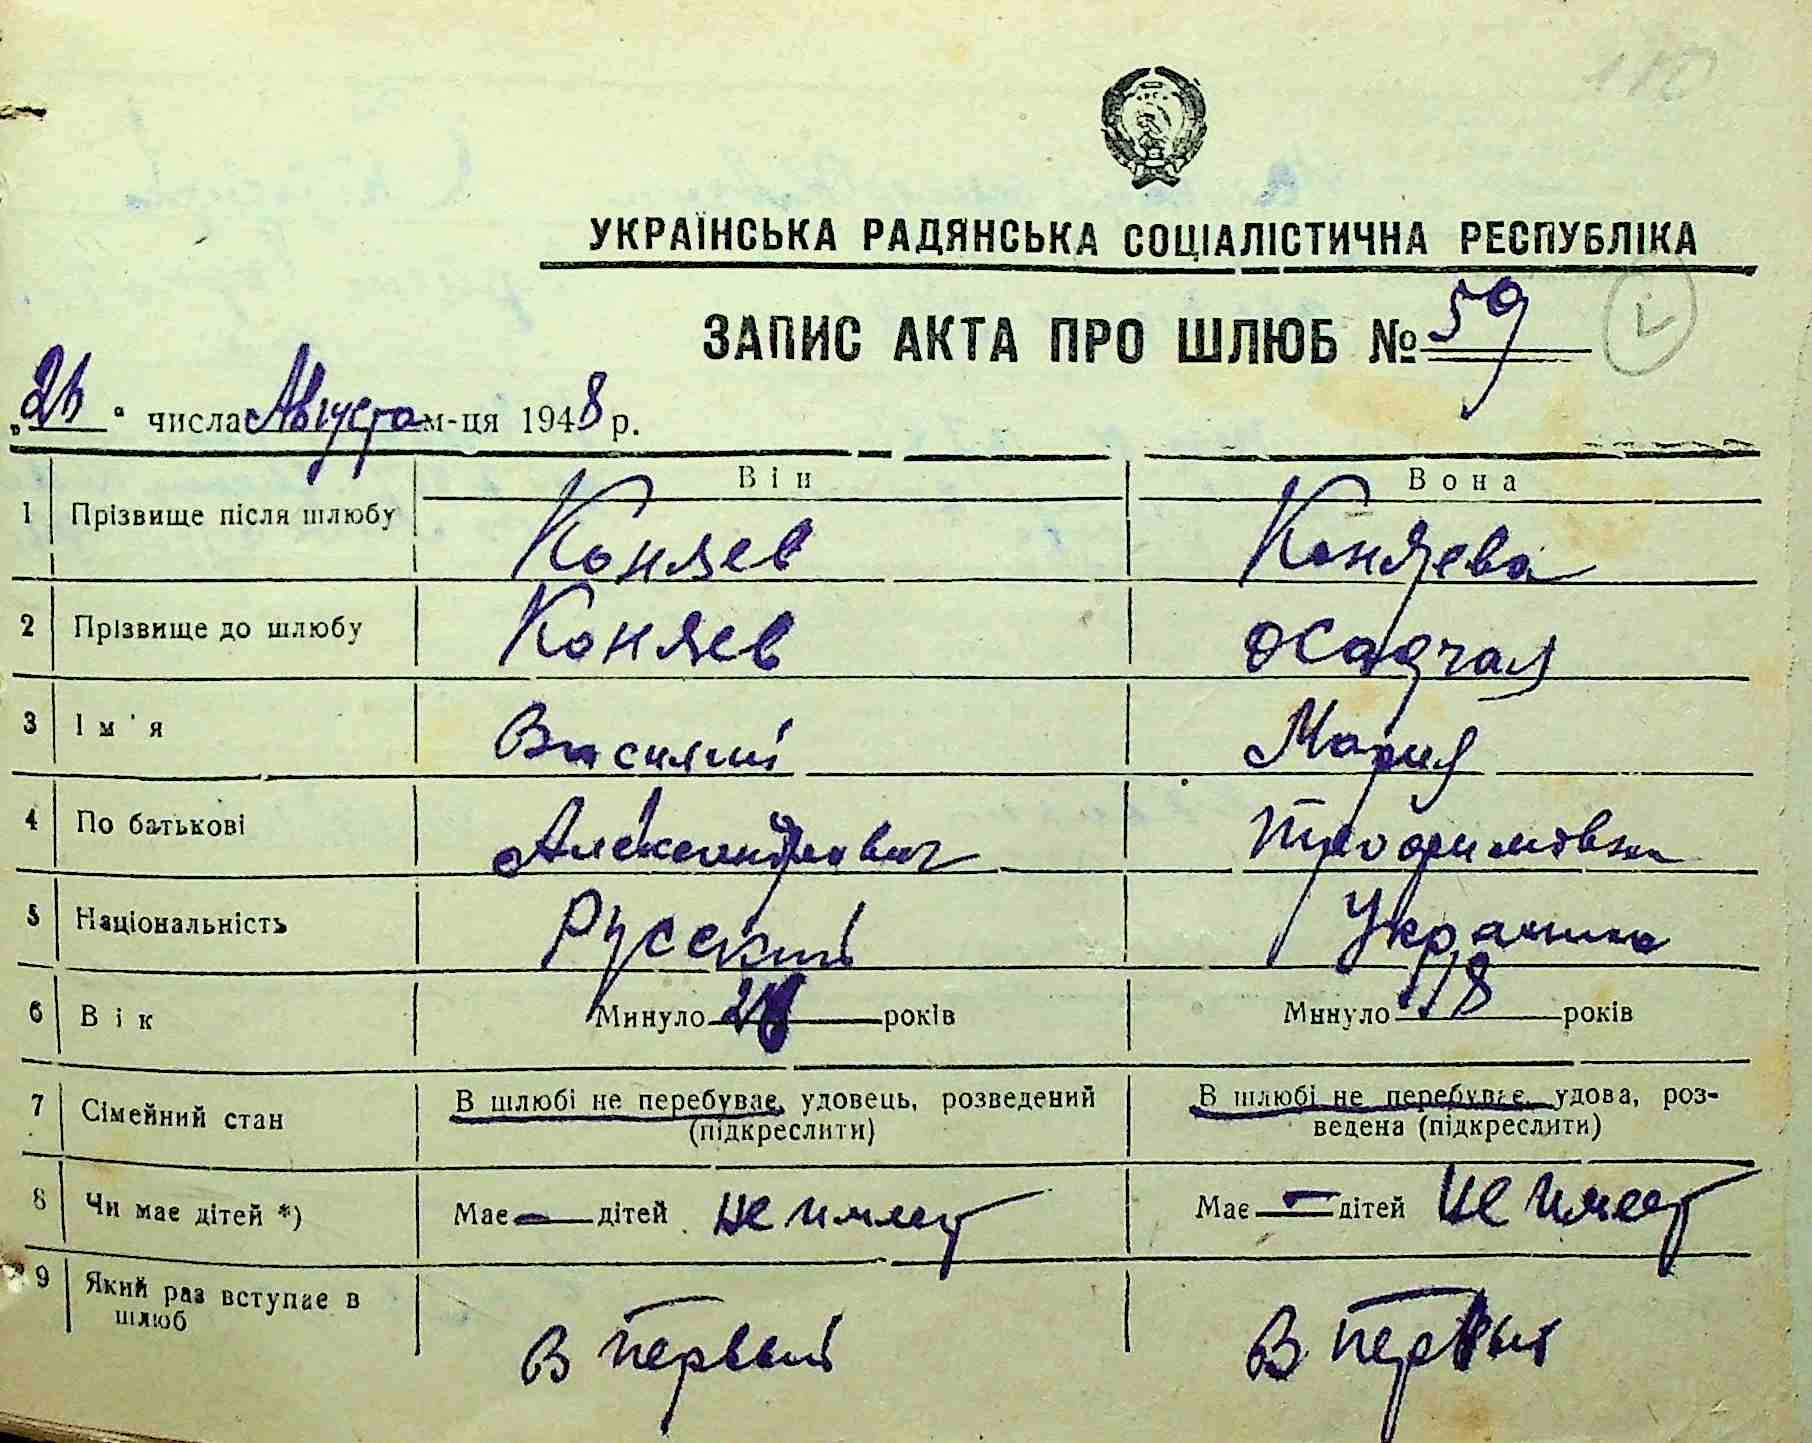 110
УКРАЇНСЬКА РАДЯНСЬКА СОЦІАЛІСТИЧНА РЕСПУБЛІКА
ЗАПИС АКТА ПРО ШЛЮБ № 59
„26“ числа Августа м-ця 1948 р.
Він Вона
1 Прізвище після шлюбу Коняев Коняева
2 Прізвище до шлюбу Коняев Осадчая
3 Ім'я Василий Мария
4 По батькові Александрович Трофимовна
5 Національність Русский Украинка
6 Вік Минуло років Минуло 18 років
7 Сімейний стан В шлюбі не перебуває, удовець, розведений (підкреслити) В шлюбі не перебуває, удова, роз-
ведена (підкреслити)
8 Чи має дітей *) Має — дітей не имеет Має — дітей не имеет
9 Який раз вступає в шлюб В первый В первый